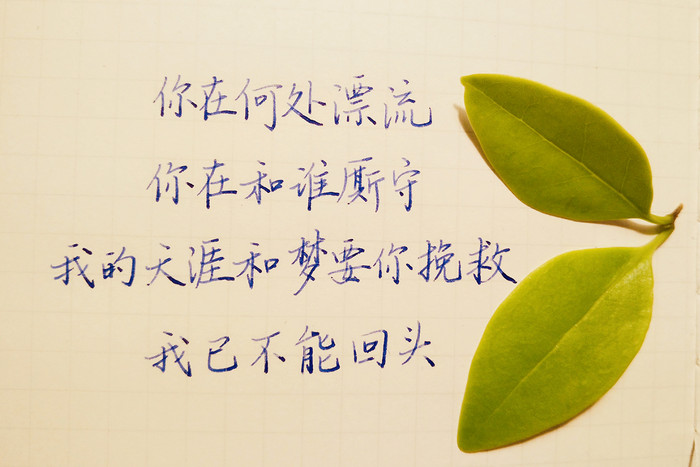 你在何处漂流
你在和谁厮守
我的天涯和梦要你挽救
我已不能回头